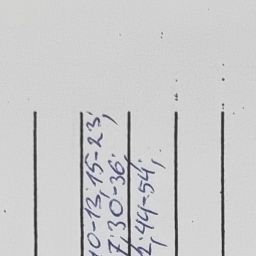 0-13; 15-23;
7; 30-36;
2; 44-54;